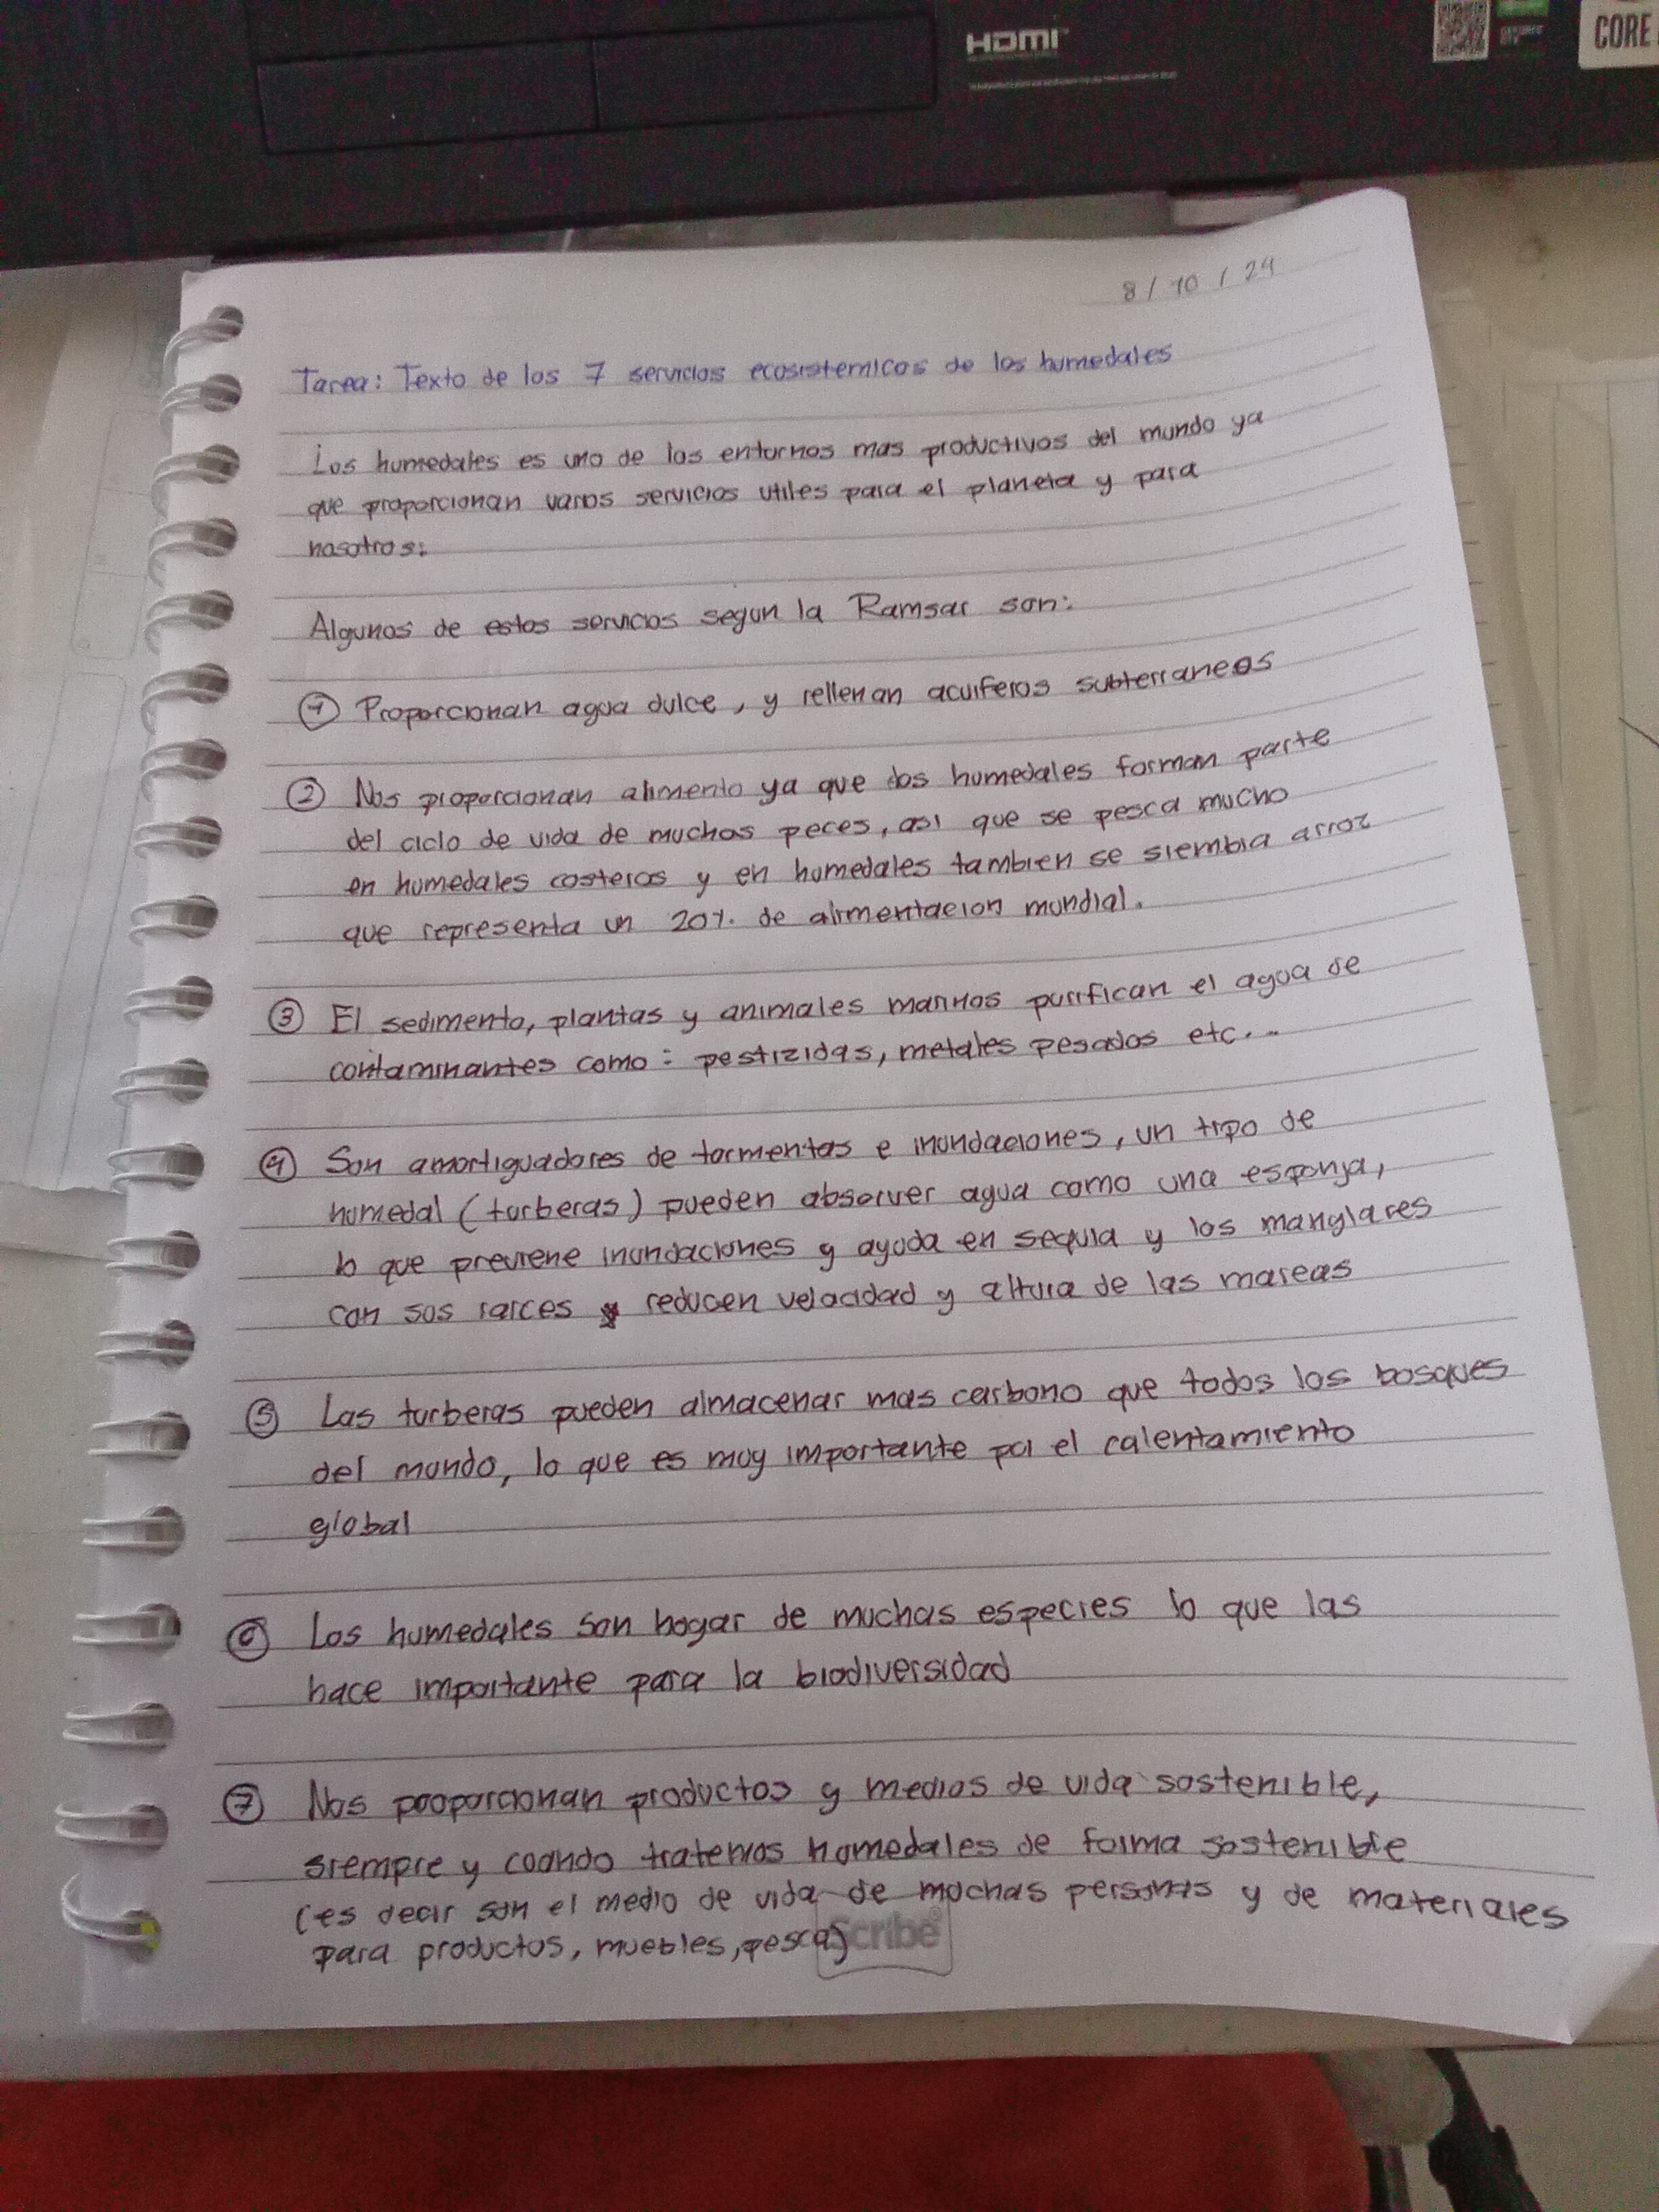 HDMI
CORE
8/10/24
Tarea: Texto de los 7 servicios ecosistemicos de los humedales
Los humedales es uno de los entornos mas productivos del mundo ya
que proporcionan varios servicios utiles para el planeta y para
nosotros:
Algunos de estos servicios segun la Ramsar son:
① Proporcionan agua dulce, y rellenan acuiferos subterraneos
② Nos proporcionan alimento ya que los humedales forman parte
del ciclo de vida de muchos peces, asi que se pesca mucho
en humedales costeros y en humedales tambien se siembra arroz
que representa un 20% de alimentacion mundial.
③ El sedimento, plantas y animales marinos purifican el agua de
contaminantes como: pestizidas, metales pesados etc...
④ Son amortiguadores de tormentas e inundaciones, un tipo de
humedal (turberas) pueden absorver agua como una esponja,
lo que previene inundaciones y ayuda en sequia y los manglares
con sus raices reducen velocidad y altura de las mareas
⑤ Las turberas pueden almacenar mas carbono que todos los bosques
del mundo, lo que es muy importante por el calentamiento
global
⑥ Los humedales son hogar de muchas especies lo que las
hace importante para la biodiversidad
⑦ Nos proporcionan productos y medios de vida sostenible,
siempre y cuando tratemos humedales de forma sostenible
(es decir son el medio de vida de muchas personas y de materiales
para productos, muebles, pesca)
Scribe®